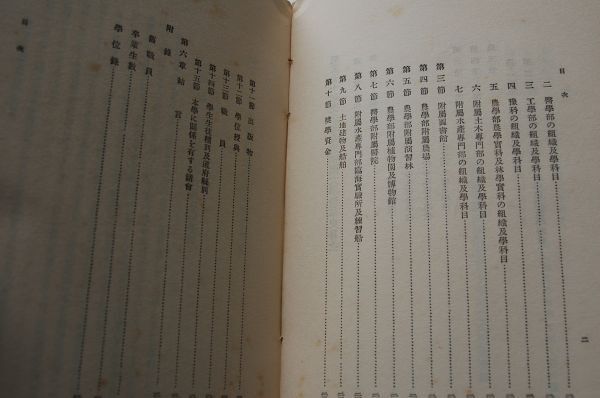 目次
二 醫學部の組織及學科目
三 工學部の組織及學科目
四 豫科の組織及學科目
五 農學部農學實科及林學實科の組織及學科目
六 附屬土木專門部の組織及學科目
七 附屬水產專門部の組織及學科目
第三節 附屬圖書館
第四節 農學部附屬農場
第五節 農學部附屬演習林
第六節 農學部附屬植物園及博物館
第七節 醫學部附屬醫院
第八節 附屬水產專門部臨海實驗所及練習船
第九節 土地建物及船舶
第十節 奬學資金
二
第十一節 出版物
第十二節 學位授與
第十三節 職員
第十四節 學生生徒種別及道府縣別
第十五節 本學に關係を有する諸會
第六章 結言
附錄
舊職員
卒業生數
學位錄
目次